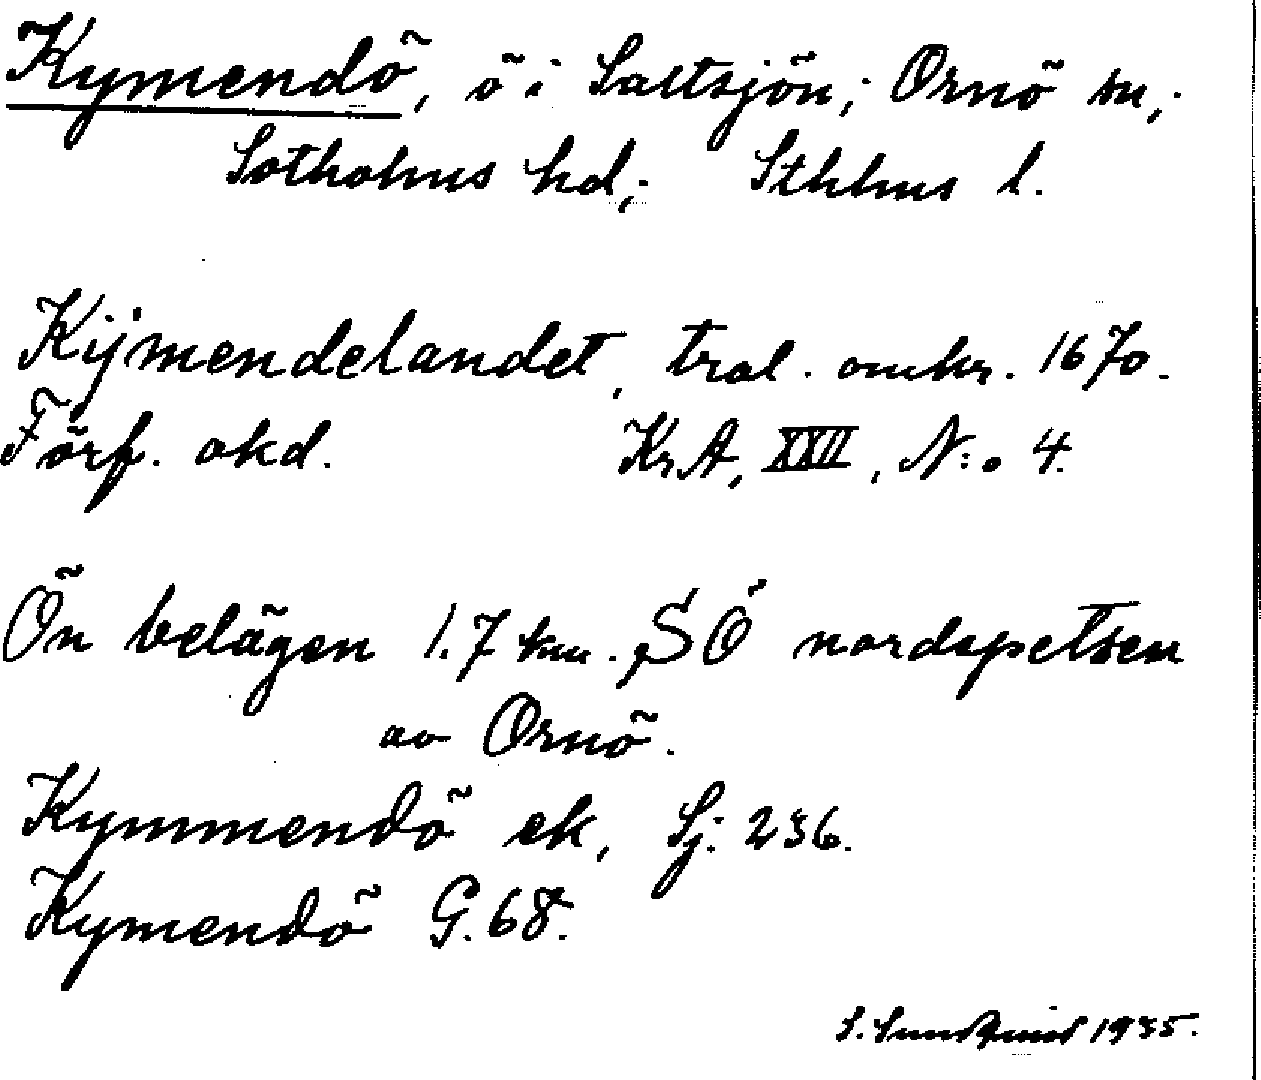 Kymendö, ö i Saltsjön; Ornö sn,;
Sotholms hd,; Sthlms l.
Kijmendelandet, tral. omkr. 1670.
Förf. okd. KrA, XXII, N:o 4.
Ön belägen 1.7 km. SÖ nordspetsen
av Ornö.
Kymmendö ek, Sj: 236.
Kymendö G. 68.
S. Sundqvist 1935.